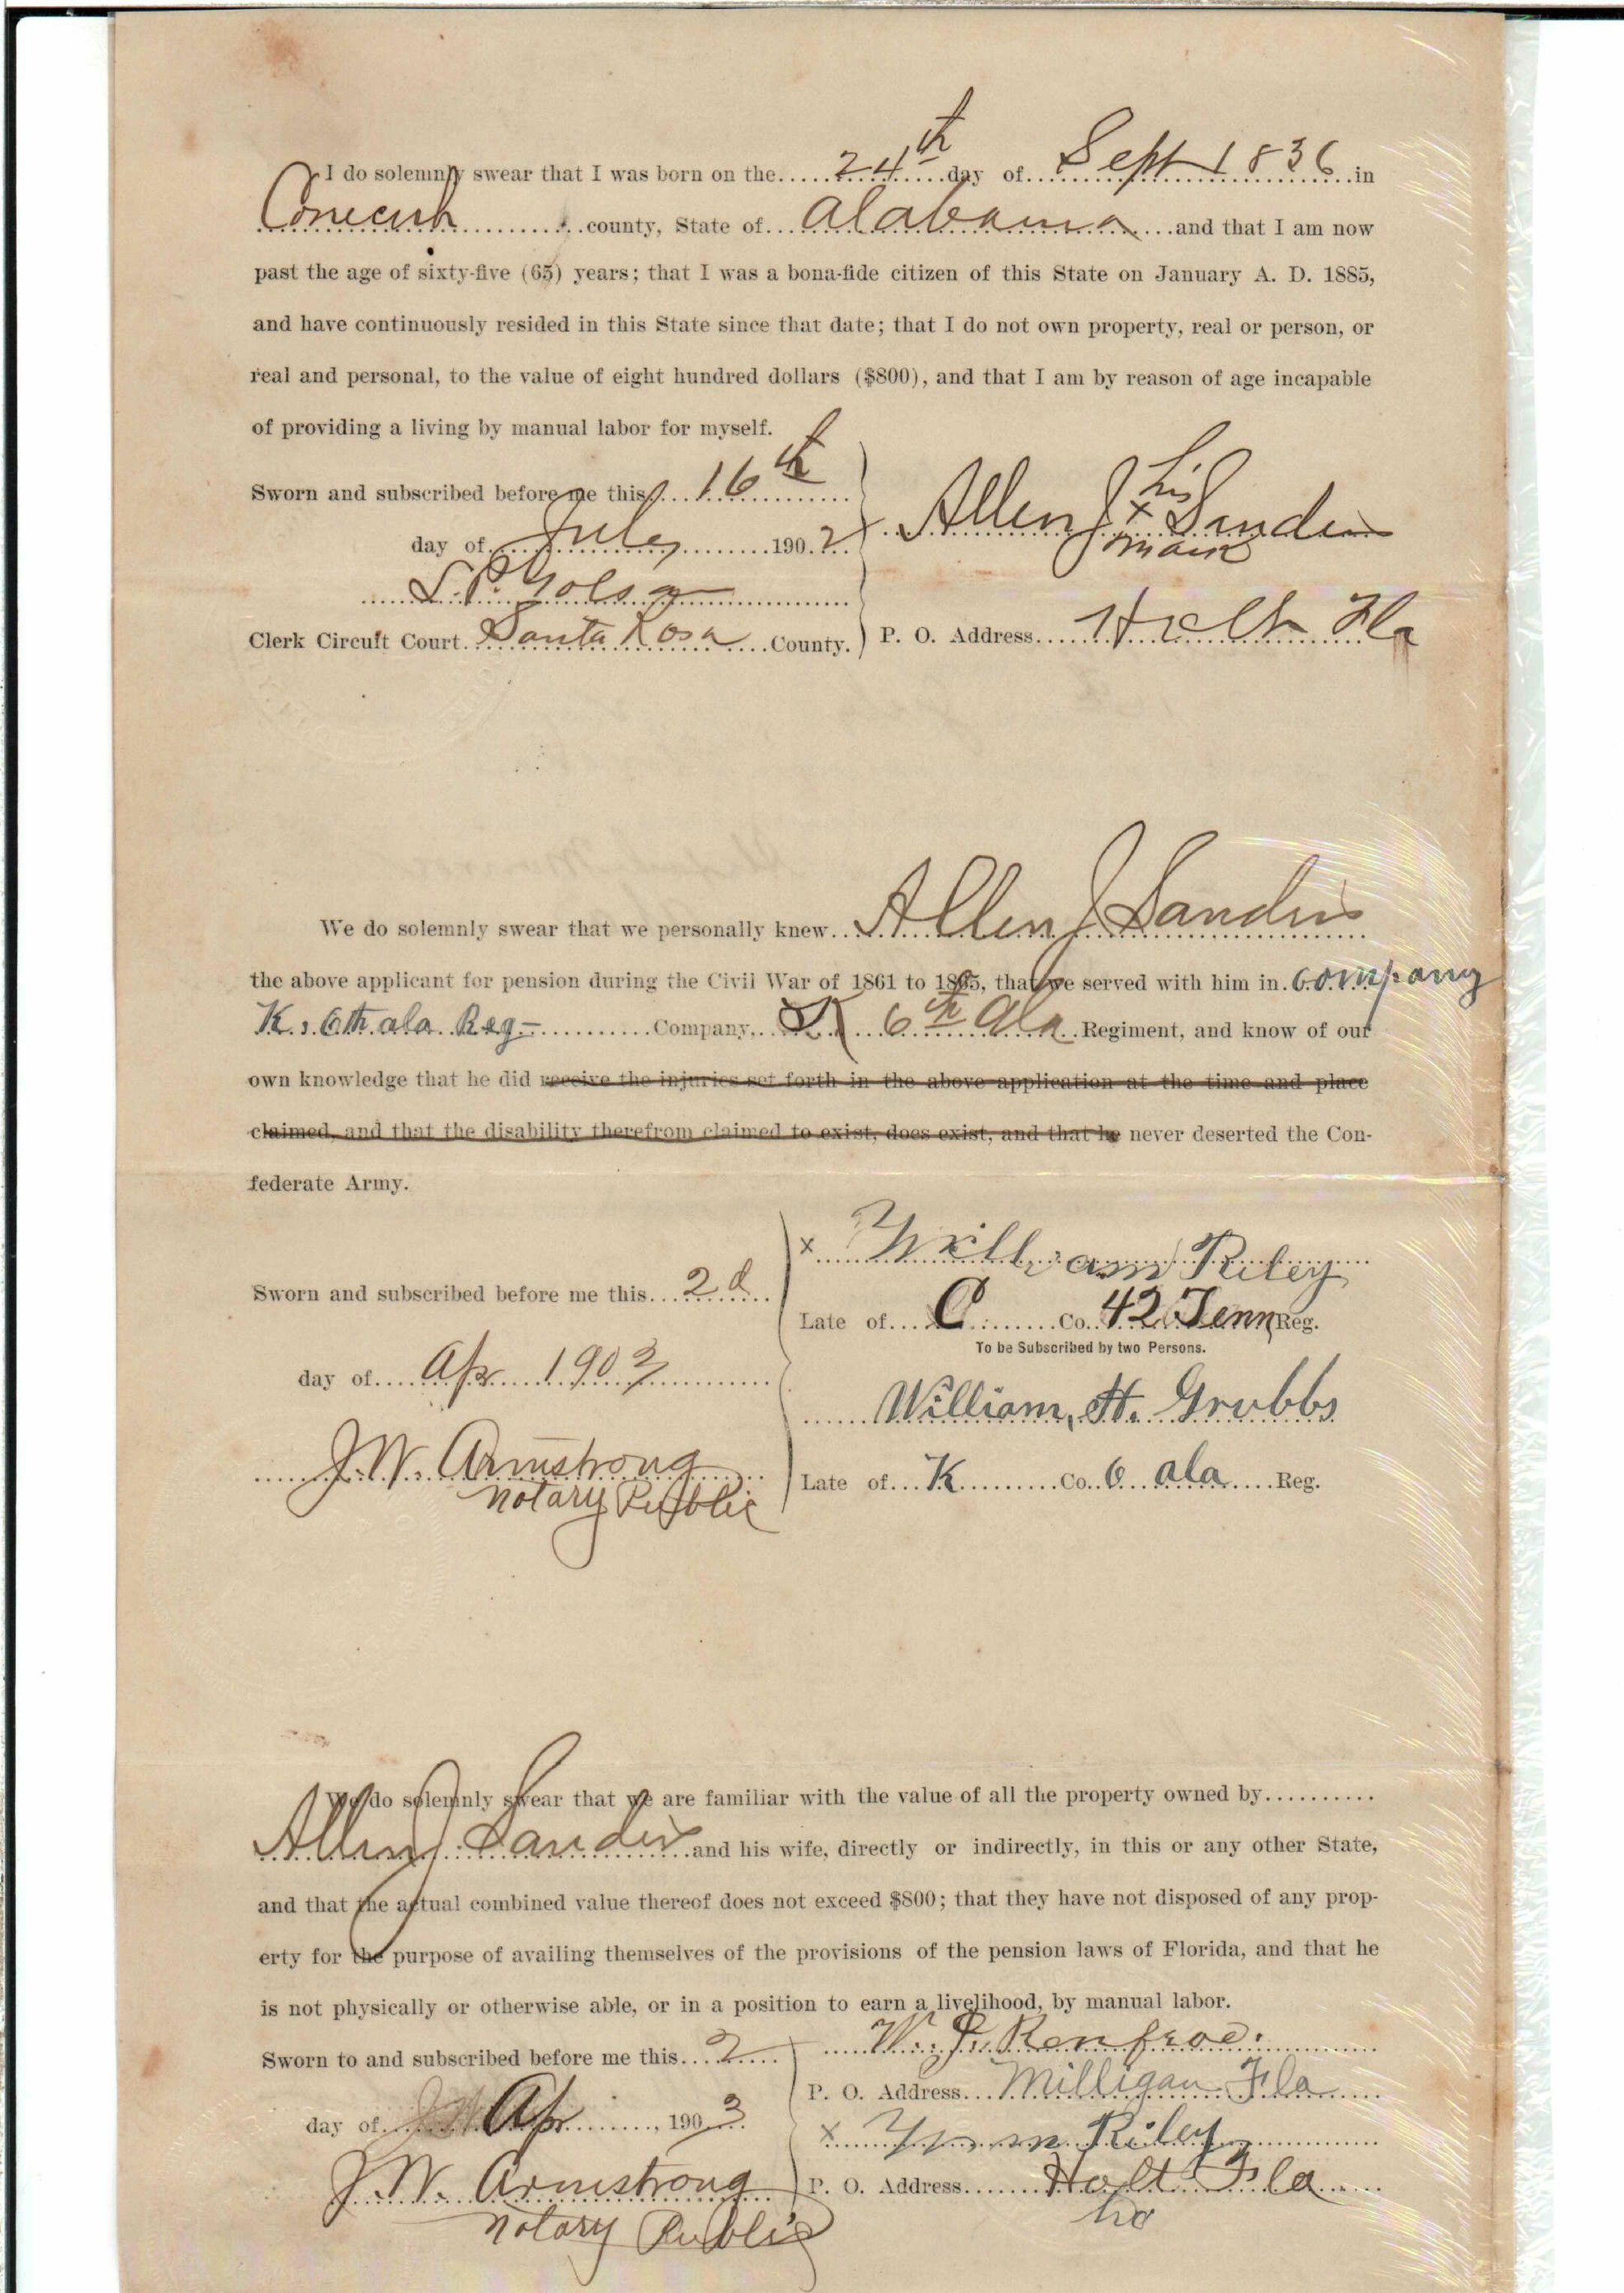 I do solemnly swear that I was born on the 24th day of Sept 1836 in
Conecuh county, State of Alabama and that I am now
past the age of sixty-five (65) years; that I was a bona-fide citizen of this State on January A. D. 1885,
and have continuously resided in this State since that date; that I do not own property, real or person, or
real and personal, to the value of eight hundred dollars ($800), and that I am by reason of age incapable
of providing a living by manual labor for myself.
Sworn and subscribed before me this 16th
day of July 1902
Allen J his x mark Sanders
S. P. Golson
Clerk Circuit Court Santa Rosa County.
P. O. Address Holt Fla
We do solemnly swear that we personally knew Allen J Sanders
the above applicant for pension during the Civil War of 1861 to 1865, that we served with him in company
K. 6th ala Reg- Company, K 6th Ala Regiment, and know of our
own knowledge that he did receive the injuries set forth in the above application at the time and place
claimed, and that the disability therefrom claimed to exist, does exist, and that he never deserted the Con-
federate Army.
x William Riley
Sworn and subscribed before me this 2d
Late of C Co. 42 Tenn Reg.
To be Subscribed by two Persons.
day of Apr 1903
William, H. Grubbs
J. W. Armstrong
Notary Public
Late of K Co. 6 ala Reg.
We do solemnly swear that we are familiar with the value of all the property owned by
Allen J Sanders and his wife, directly or indirectly, in this or any other State,
and that the actual combined value thereof does not exceed $800; that they have not disposed of any prop-
erty for the purpose of availing themselves of the provisions of the pension laws of Florida, and that he
is not physically or otherwise able, or in a position to earn a livelihood, by manual labor.
Sworn to and subscribed before me this 2
W. J. Renfroe.
P. O. Address Milligan Fla
day of Apr, 1903
x Wm Riley
J. W. Armstrong
Notary Public
P. O. Address Holt Fla